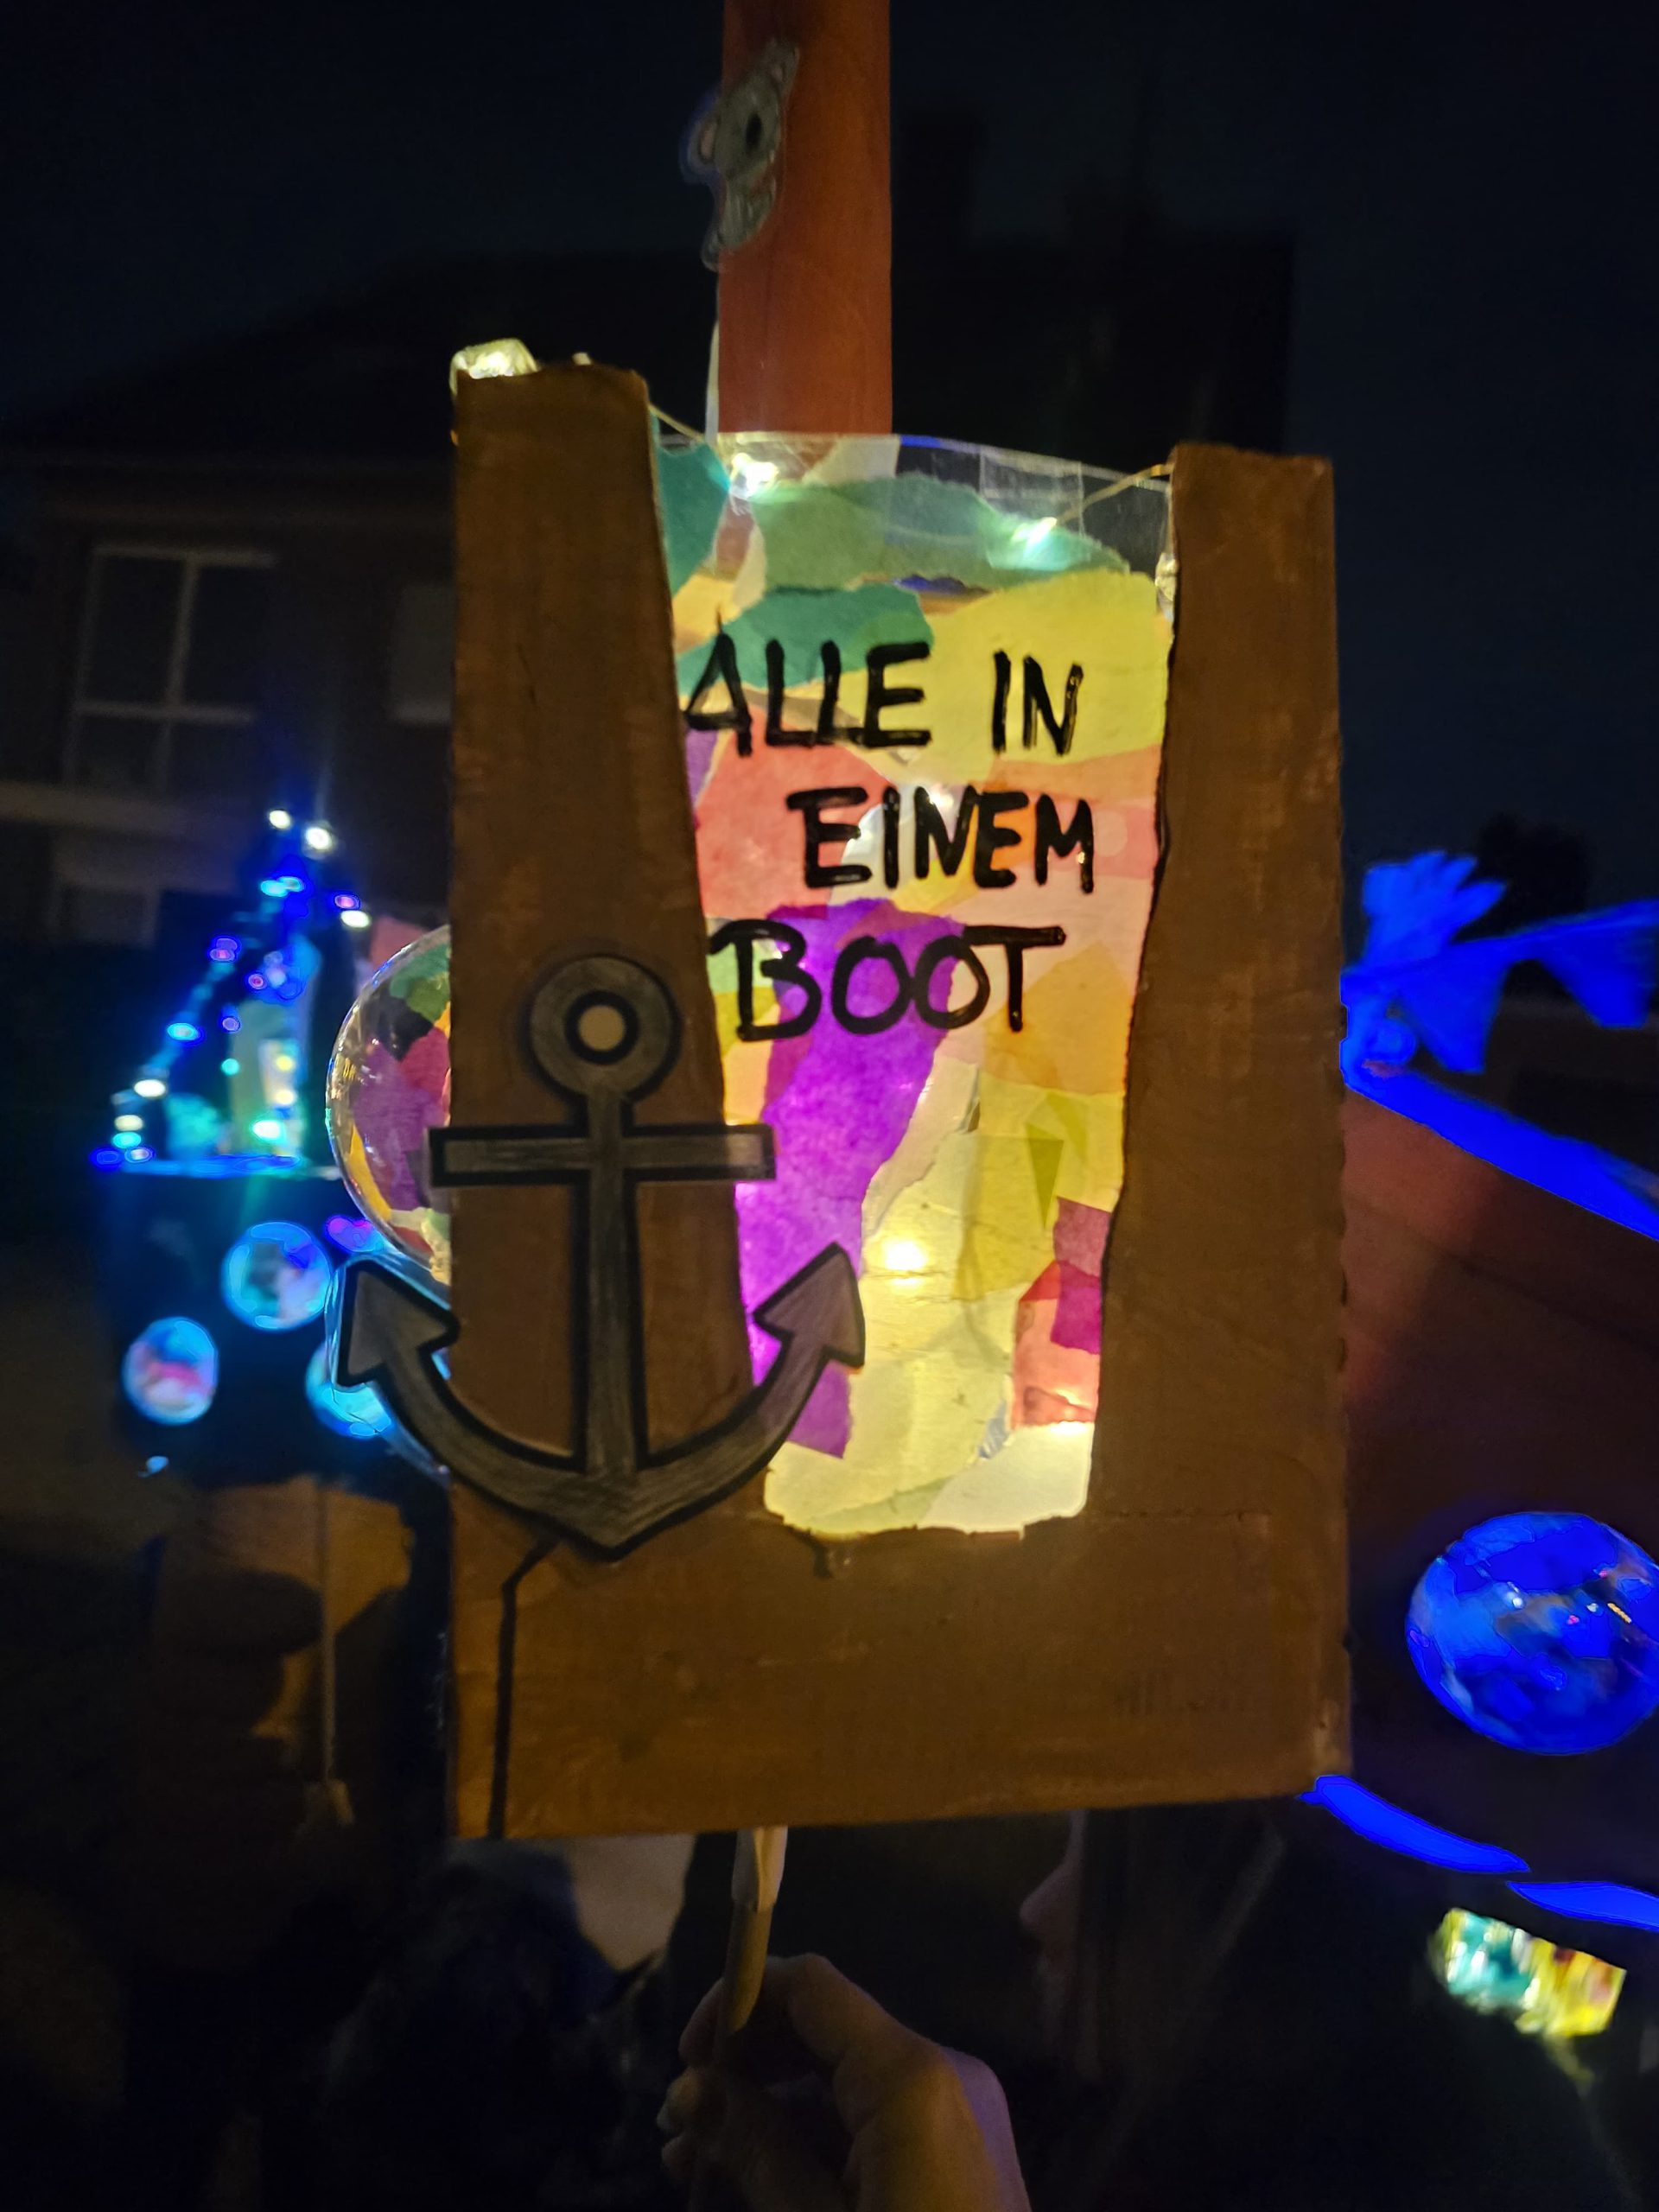 ALLE IN
EINEM
BOOT